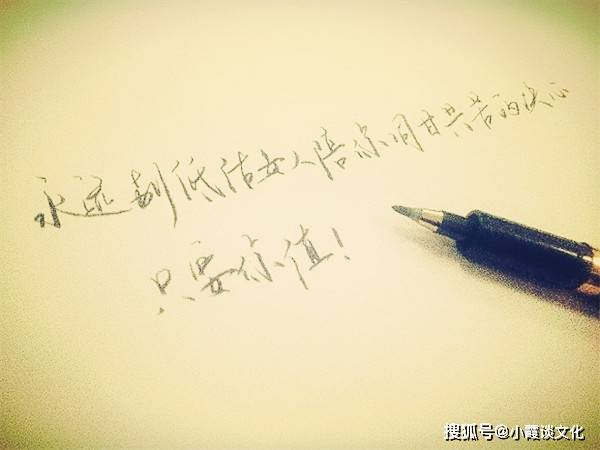 永远别低估女人陪你同甘共苦的决心
只要你值！
搜狐号@小霞谈文化